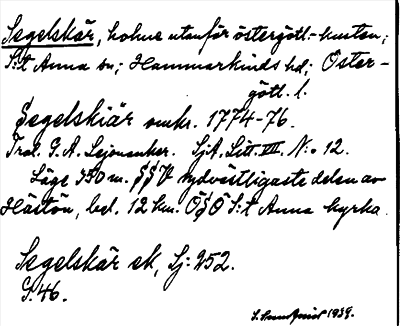 Segelskär, holme utanför östergötl.-kusten;
S:t Anna sn; Hammarkinds hd; Öster-
götl. l.
Segelskiär omkr. 1774-76.
G. A. Lejonanker. SjA, Litt. VII. N:o 12.
Läge 350 m. SSV sydvästligaste delen av
Hästön, bel. 12 km. ÖSÖ S:t Anna kyrka.
Segelskär ek, Sj: 252.
S. 46.
1939.